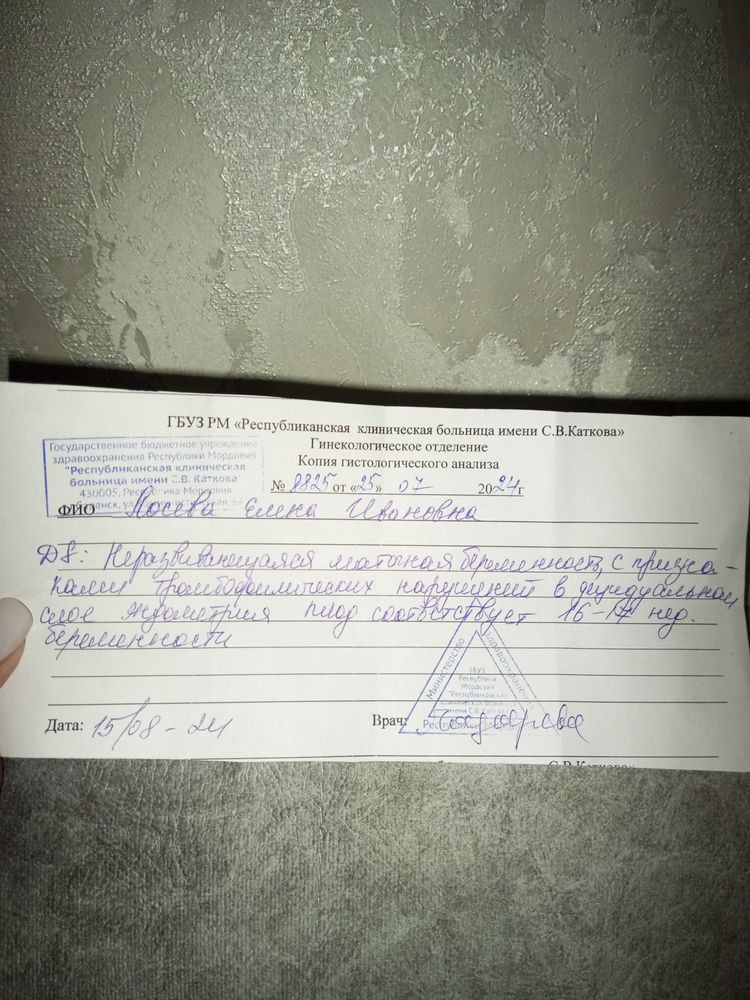 ГБУЗ РМ «Республиканская клиническая больница имени С.В.Каткова»
Гинекологическое отделение
Копия гистологического анализа
Государственное бюджетное учреждение
здравоохранения Республики Мордовия
"Республиканская клиническая
больница имени С.В. Каткова"
430005, Республика Мордовия,
№ 8825 от «25» 07 2024г
ФИО Елена Ивановна
DS: Неразвивающаяся маточная беременность с призна-
ками нарушений в децидуальном
слое эндометрия плод соответствует 16-17 нед.
беременности
Министерство здравоохранения
ГБУЗ
Республики
Мордовия
"Республиканская
клиническая больница
имени С.В. Каткова"
Дата: 15/08-24
Врач:
С.В.Каткова»